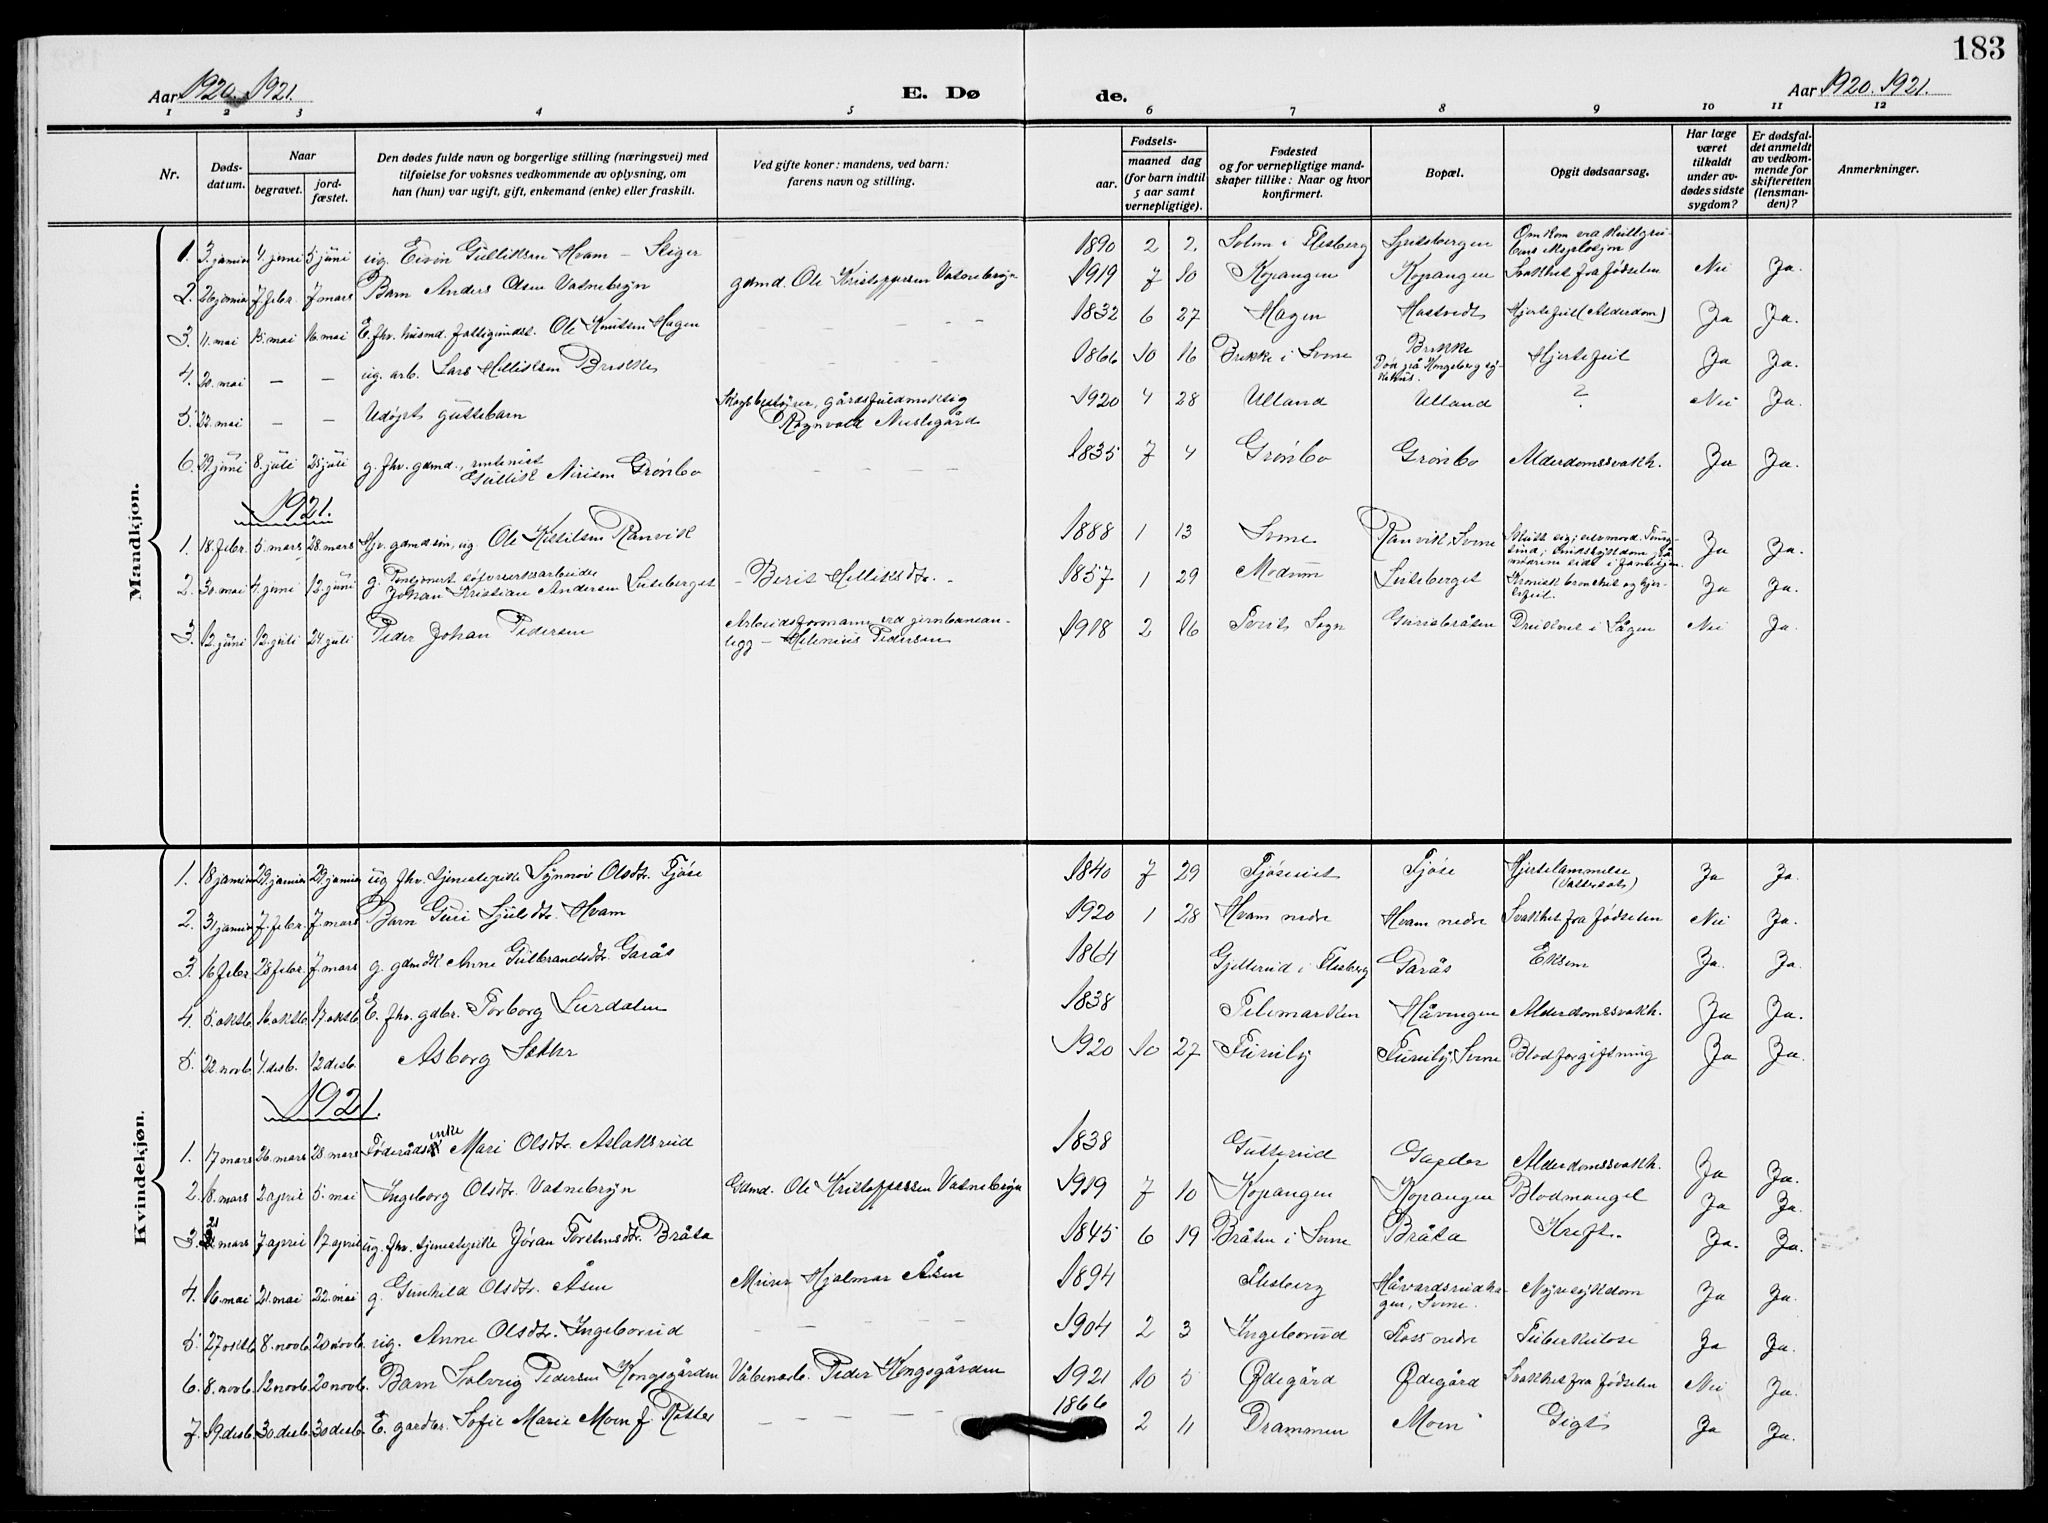 183
Aar 1920. 1921.
E. Dø
de.
Aar 1920. 1921.
1 2 3 4 5 6 7 8 9 10 11 12
Nr.
Døds-datum.
Naar
begravet.
jord-fæstet.
Den dødes fulde navn og borgerlige stilling (næringsvei) med
tilføielse for voksnes vedkommende av oplysning, om
han (hun) var ugift, gift, enkemand (enke) eller fraskilt.
Ved gifte koner: mandens, ved barn:
farens navn og stilling.
Fødsels-
aar.
maaned dag
(for barn indtil
5 aar samt
vernepligtige).
Fødested
og for vernepligtige mand-
skaper tillike: Naar og hvor
konfirmert.
Bopæl.
Opgit dødsaarsag.
Har læge
været
tilkaldt
under av-
dødes sidste
sygdom?
Er dødsfal-
det anmeldt
av vedkom-
mende for
skifteretten
(lensman-
den)?
Anmerkninger.
Mandkjøn.
1. 3. januar 4. juni 5 juni ug. Eivin Gulliksen Hvam – Stiger 1890 2 2. Solem i Flesberg Spitsbergen Omkom ved kullgru-
bens eksplosjon
2. 26 januar 7 febr. 7 mars Barn Anders Olsen Vatnebryn gdmd. Ole Kristoffersen Vatnebryn 1919 7 10 Kopangen Kopangen Svakhet fra fødselen Nei Ja.
3. 11. mai 15. mai 16. mai E. fhv. husmd. fattigunderst. Ole Knutsen Hagen – – – – 1832 6 27 Hagen Hostvedt Hjertefeil (Alderdom) Ja Ja.
4. 20. mai – – ug. arb. Lars Helliksen Brekke – – – 1866 10 16 Brekke i Svene Brekke
Død på Kongsberg sy-
kehus. Hjertefeil Ja Ja.
5. 22. mai – – Udøpt guttebarn Skogbestyrer, gårdsfuldmektig
Ragnvald Nustegård 1920 4 28 Ulland Ulland ? Nei Ja.
6. 29 juni 8. juli 25 juli g. fhv. gdmd., rentenist
Gullik Nirisen Grønbo – – – 1835 7 4 Grønbo Grønbo Alderdomssvakh. Ja Ja.
1921.
1. 18. febr. 5. mars 28. mars Hjv. gdmdsøn, ug. Ole Kittilsen Ranvik 1888 1 13 Svene Ranvik Svene Ja Ja.
2. 30. mai 4. juni 12. juni g. Pensjonert sølvverksarbeider
Johan Kristian Andersen Liseberget – Berit Helliksdtr. – 1857 1 29 Modum Liseberget Kronisk bronchit og hjer-
tefeil. Ja Ja.
3. 12. juni 12. juli 24 juli Peder Johan Pedersen Arbeidsformann ved jernbanean-
legg – Helenius Pedersen 1918 2 16 Tveit Sogn Gurisbråten Druknet i Lågen Nei Ja.
Kvindekjøn.
1. 18 januar 29. januar 29. januar ug fhv. tjenestepike Synnøv Olsdtr. Fjøse 1840 7 29 Fjøseiet Fjøse Hjertelammelse
(Vattersot) Ja Ja.
2. 31 januar 7. febr. 7. mars Barn Guri Sjulsdtr. Hvam 1920 1 28 Hvam nedre Hvam nedre Svakhet fra fødselen Nei Ja.
3. 16 febr 28 febr. 7. mars g. gdmdk. Anne Gulbrandsdtr. Garås 1864 Gjellerud i Flesberg Garås Eksem Ja. Ja.
4. 5. oktb. 16 oktb. 17. oktb. E. fhv. gdbr. Torborg Lurdalen 1838 Telemarken Håvengen Alderdomssvakh. Ja Ja.
5. 22. novb. 4. desb. 12 desb. Asborg Sekkr 1920 10 27 Furuly Furuly, Svene Blodforgiftning Ja Ja.
1921.
1. 17 mars 26. mars 28. mars Føderådsenke Mari Olsdtr. Aslaksrud 1838 Gullerud Gapder Alderdomssvakh. Ja Ja.
2. 18. mars 2 april 5. mai Ingeborg Olsdtr. Vatnebryn Gdmd. Ole Kristoffersen Vatnebryn 1919 7 10 Kopangen Kopangen Blodmangel Ja Ja.
3. 21 mars 7 april 17 april ug. fhv. tjenestepike Jøran Torstensdtr. Bråta 1845 6 19 Bråten i Svene Bråta Kreft. Ja. Ja.
4. 16. mai 21. mai 22. mai g. Gunhild Olsdtr. Åsen Murer Hjalmar Åsen 1894 Flesberg Håvardsrudha-
gen, Svene. Nyresykdom Ja Ja.
5. 27 oktb. 8. novb. 20 novb. ug. Anne Olsdtr. Ingeborud – – – – 1904 2 3 Ingeborud Foss nedre Tuberkulose Ja Ja.
6. 8. novb. 12 novb. 20 novb. Barn Solveig Pedersen Kongsgården Våbenarb. Peder Kongsgården 1921 10 5 Ødegård Ødegård Svakhet fra fødselen Nei Ja.
7. 19. desb. 30. desb. 30 desb. E. gardbr. Sofie Marie Moen f. – – – – 1866 2 11 Drammen Moen Gigt Ja Ja.